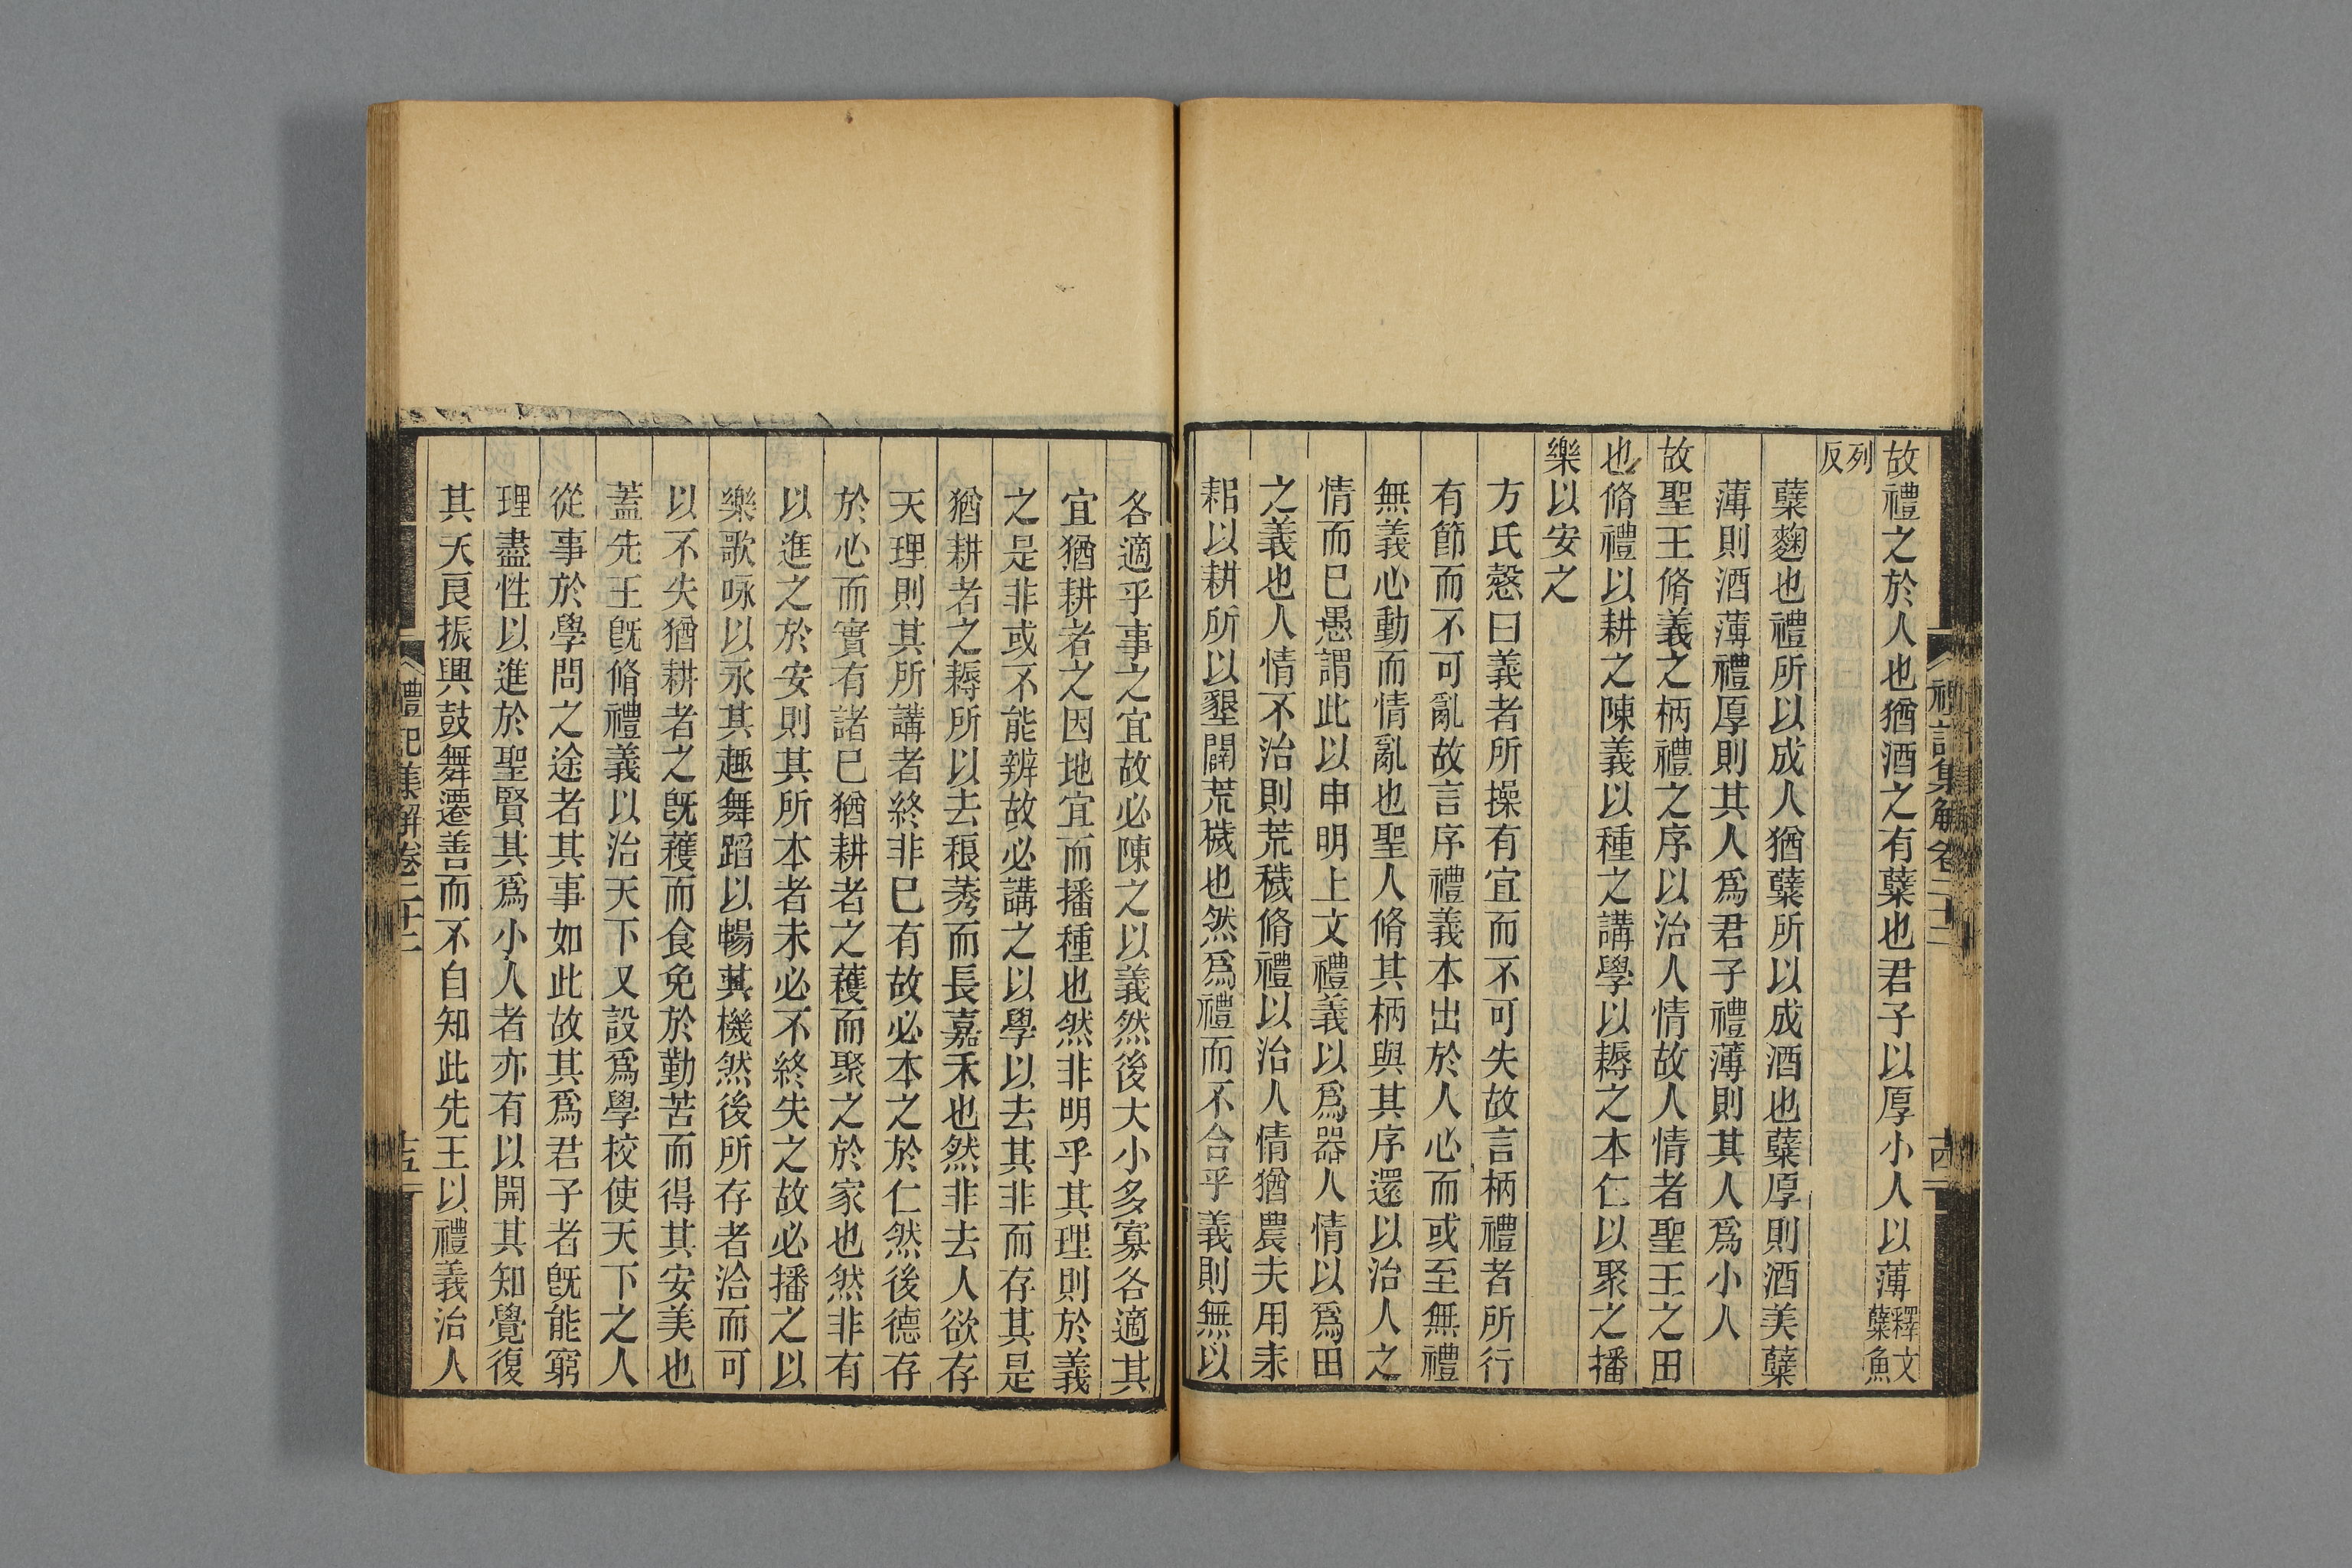 故禮之於人也猶酒之有蘖也君子以厚小人以薄釋文蘖魚
列反
蘖麴也禮所以成人猶蘖所以成酒也蘖厚則酒美蘖
薄則酒薄禮厚則其人爲君子禮薄則其人爲小人
故聖王脩義之柄禮之序以治人情故人情者聖王之田
也脩禮以耕之陳義以種之講學以耨之本仁以聚之播
樂以安之
方氏慤曰義者所操有宜而不可失故言柄禮者所行
有節而不可亂故言序禮義本出於人心而或至無禮
無義心動而情亂也聖人脩其柄與其序還以治人之
情而已愚謂此以申明上文禮義以爲器人情以爲田
之義也人情不治則荒穢脩禮以治人情猶農夫用耒
耜以耕所以墾闢荒穢也然爲禮而不合乎義則無以
禮記集解卷二十二
十四
各適乎事之宜故必陳之以義然後大小多寡各適其
宜猶耕者之因地宜而播種也然非明乎其理則於義
之是非或不能辨故必講之以學以去其非而存其是
猶耕者之耨所以去稂莠而長嘉禾也然非去人欲存
天理則其所講者終非已有故必本之於仁然後德存
於心而實有諸已猶耕者之穫而聚之於家也然非有
以進之於安則其所本者未必不終失之故必播之以
樂歌咏以永其趣舞蹈以暢其機然後所存者洽而可
以不失猶耕者之旣穫而食免於勤苦而得其安美也
蓋先王旣脩禮義以治天下又設爲學校使天下之人
從事於學問之途者其事如此故其爲君子者旣能窮
理盡性以進於聖賢其爲小人者亦有以開其知覺復
其天良振興鼓舞遷善而不自知此先王以禮義治人
禮記集解卷二十二
十五